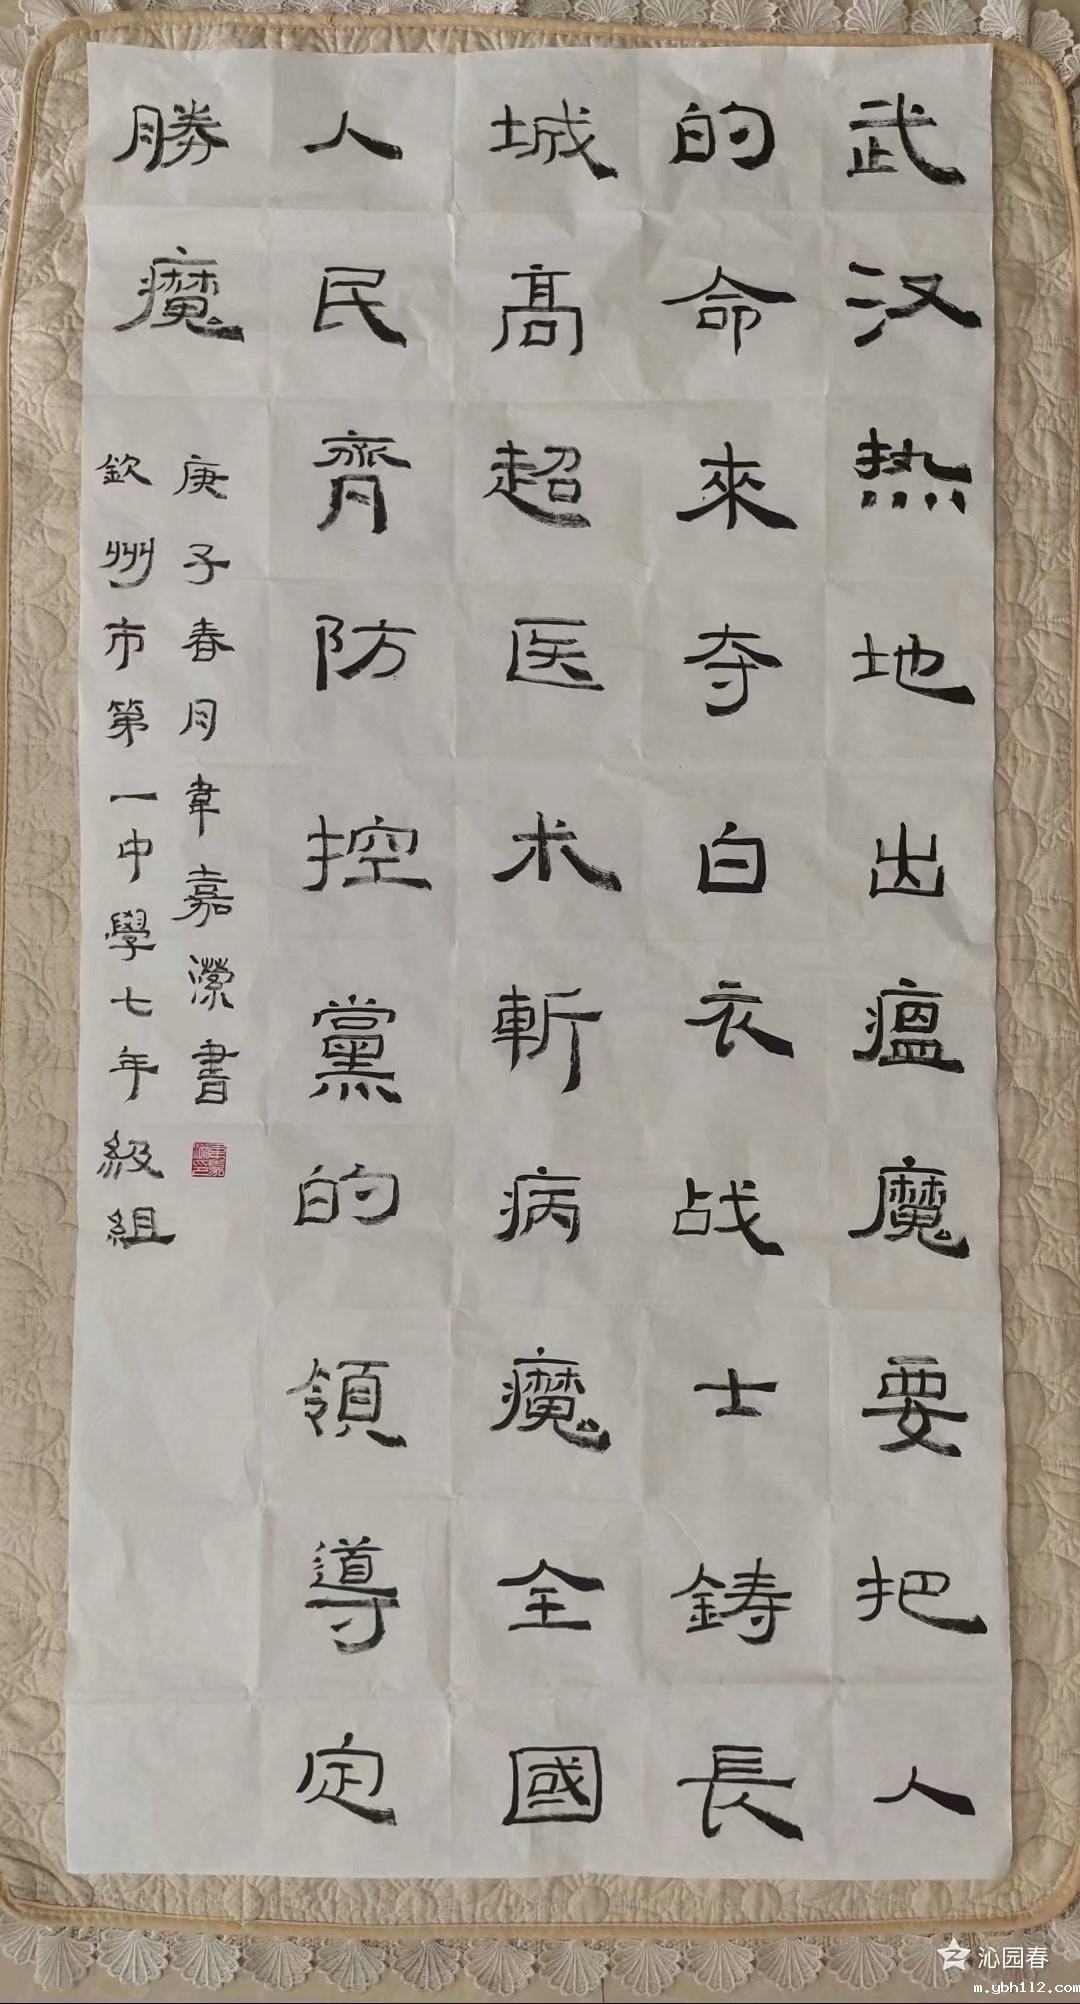 武汉热地出瘟魔要把人
的命來夺白衣战士鋳長
城髙超医术斬病魔全國
人民齊防控黨的領導定
勝魔
庚子春月韋嘉瀠書
欽州市第一中學七年級組
沁园春
m.ybh112.com